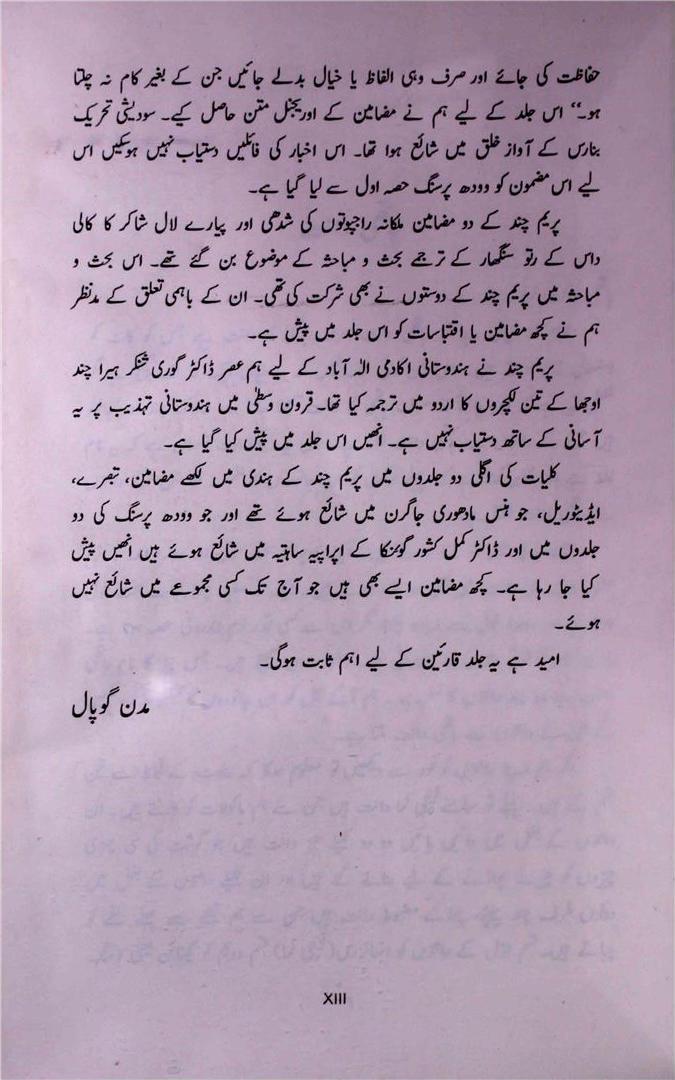 حفاظت کی جائے اور صرف وہی الفاظ یا خیال بدلے جائیں جن کے بغیر کام نہ چلتا
ہو۔“ اس جلد کے لیے ہم نے مضامین کے اوریجنل متن حاصل کیے۔ سودیشی تحریک
بنارس کے آواز خلق میں شائع ہوا تھا۔ اس اخبار کی فائلیں دستیاب نہیں ہوسکیں اس
لیے اس مضمون کو وودھ پرسنگ حصہ اول سے لیا گیا ہے۔
پریم چند کے دو مضامین ملکانہ راجپوتوں کی شدھی اور پیارے لال شاکر کا کالی
داس کے رتو سنگھار کے ترجمے بحث و مباحثہ کے موضوع بن گئے تھے۔ اس بحث و
مباحثہ میں پریم چند کے دوستوں نے بھی شرکت کی تھی۔ ان کے باہمی تعلق کے مدنظر
ہم نے کچھ مضامین یا اقتباسات کو اس جلد میں پیش ہے۔
پریم چند نے ہندوستانی اکادمی الہ آباد کے لیے ہم عصر ڈاکٹر گوری شنکر ہیرا چند
اوجھا کے تین لکچروں کا اردو میں ترجمہ کیا تھا۔ قرون وسطٰی میں ہندوستانی تہذیب پر یہ
آسانی کے ساتھ دستیاب نہیں ہے۔ انھیں اس جلد میں پیش کیا گیا ہے۔
کلیات کی اگلی دو جلدوں میں پریم چند کے ہندی میں لکھے مضامین، تبصرے،
ایڈیٹوریل، جو ہنس مادھوری جاگرن میں شائع ہوئے تھے اور جو وودھ پرسنگ کی دو
جلدوں میں اور ڈاکٹر کمل کشور گوئنکا کے اپراپیہ ساہتیہ میں شائع ہوئے ہیں انھیں پیش
کیا جا رہا ہے۔ کچھ مضامین ایسے بھی ہیں جو آج تک کسی مجموعے میں شائع نہیں
ہوئے۔
امید ہے یہ جلد قارئین کے لیے اہم ثابت ہوگی۔
مدن گوپال
XIII